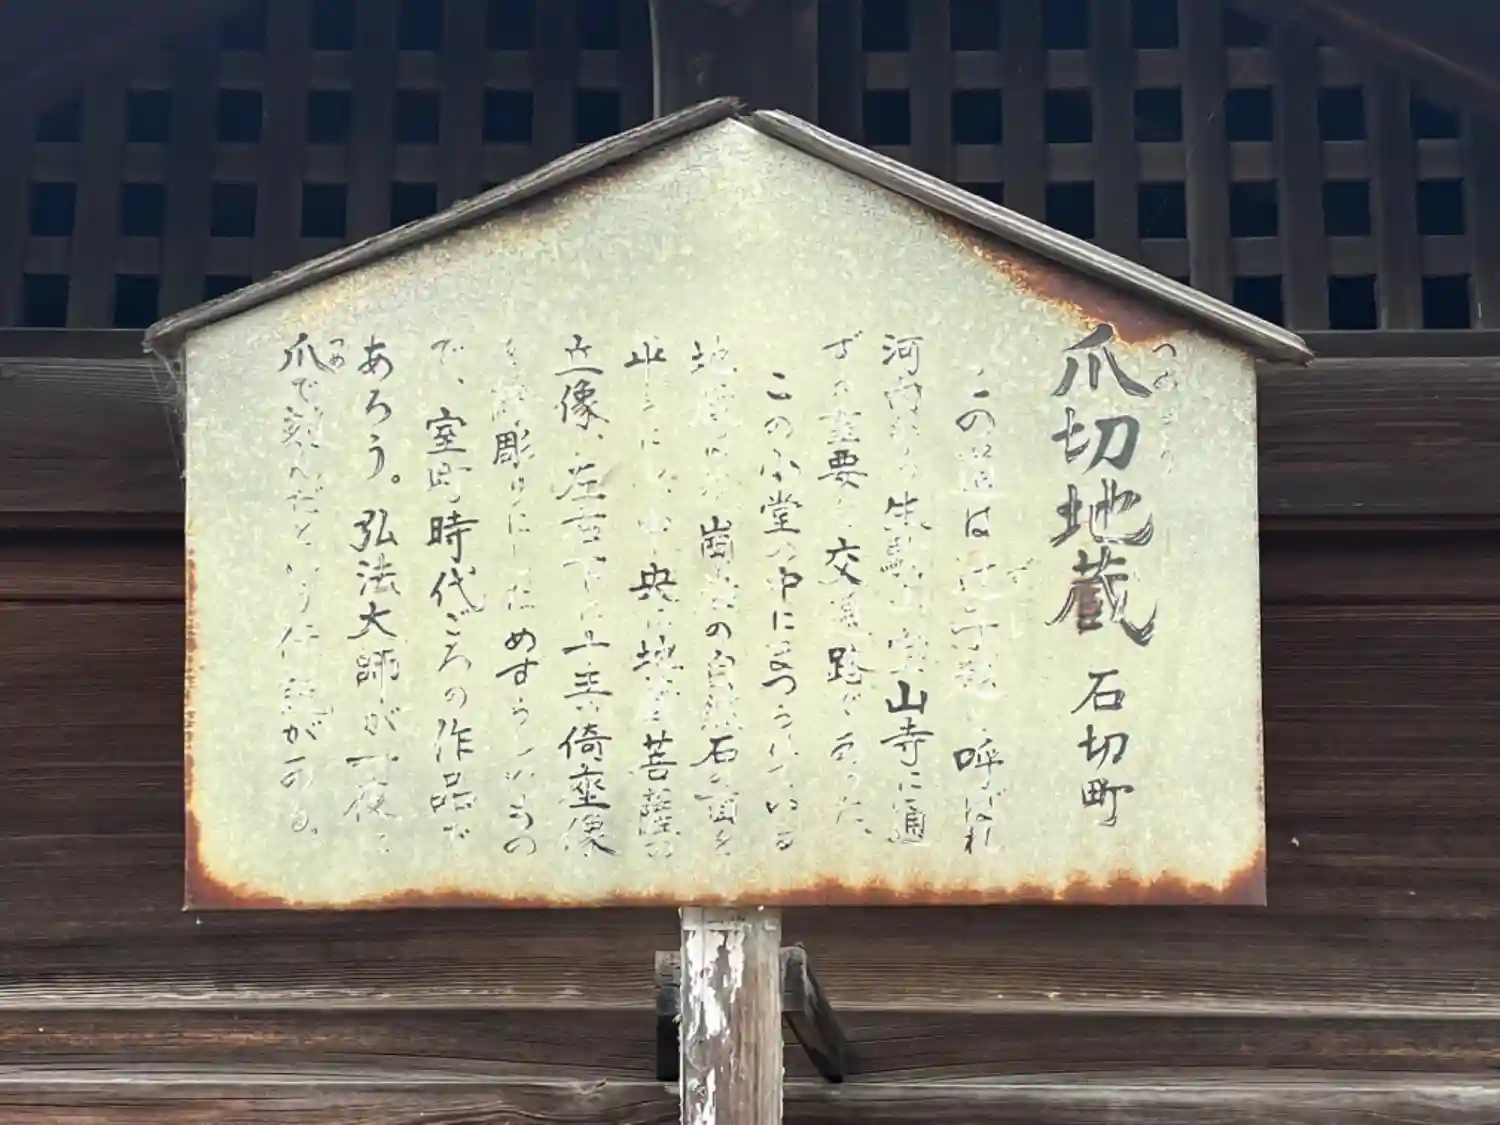 爪切地蔵 石切町
つめきり
この道は辻子越と呼ばれ
河内から生駒山宝山寺に通
ずる重要な交通路であった。
この小堂の中にまつられている
地蔵は、花崗岩の自然石の面を
平らにし、中央に地蔵菩薩の
立像、左右下に十王倚座像
を彫りにしためずらしいもの
で、室町時代ごろの作品で
あろう。弘法大師が一夜に
爪で刻んだという伝説がある。
つめ